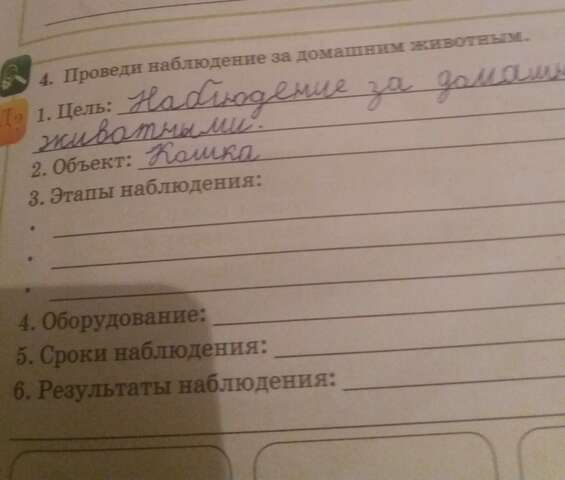 4. Проведи наблюдение за домашним животным.
1. Цель: Наблюдение за домашн
животными.
2. Объект: Кошка
3. Этапы наблюдения:
•
•
•
4. Оборудование:
5. Сроки наблюдения:
6. Результаты наблюдения: